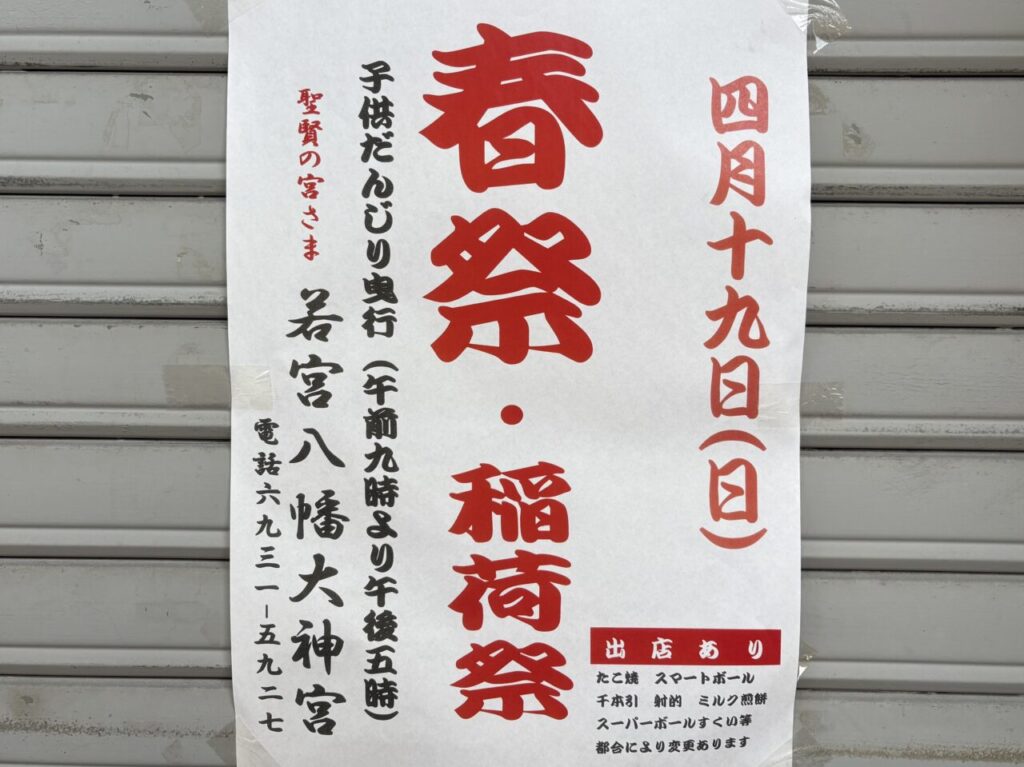 四月十九日(日)
春祭・稲荷祭
子供だんじり曳行(午前九時より午後五時)
聖賢の宮さま 若宮八幡大神宮
電話六九三一-五九二七
出店あり
たこ焼 スマートボール
千本引 射的 ミルク煎餅
スーパーボールすくい等
都合により変更あります